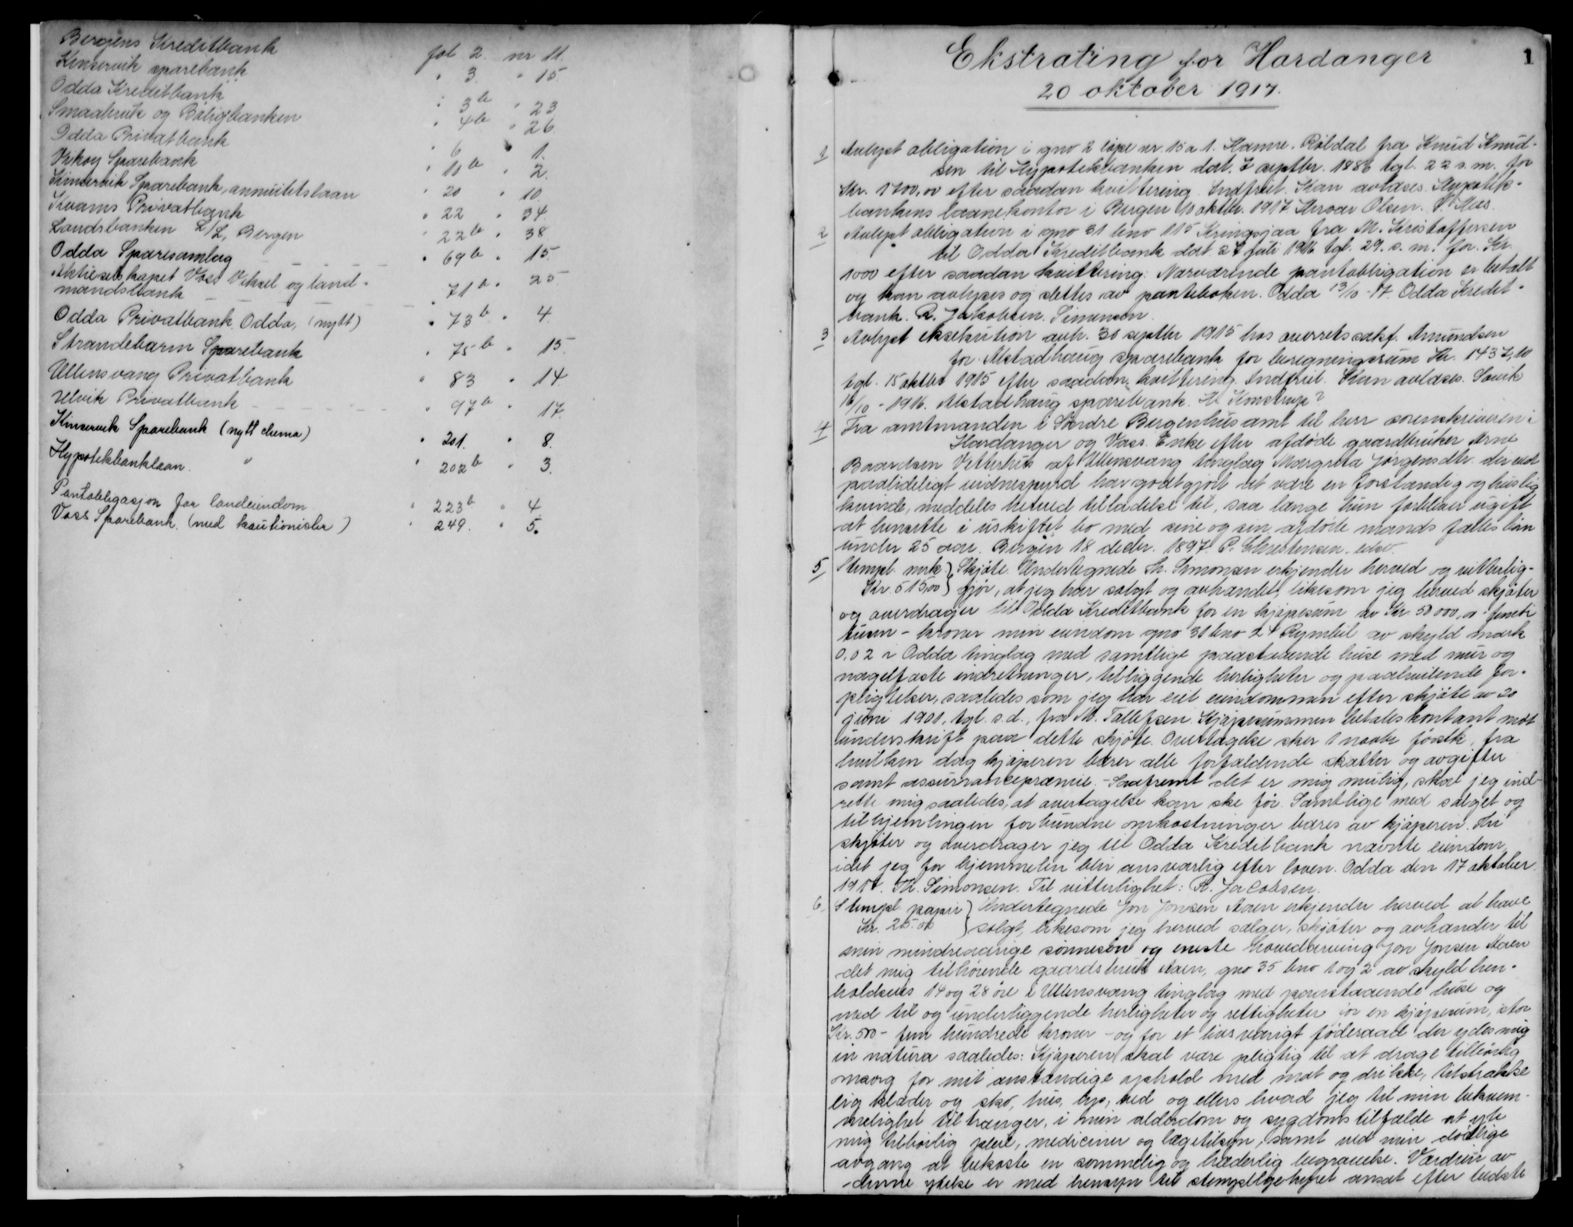 Bergens Kreditbank fol 2 nr 11.
Kinservik sparebank " 3. " 15
Odda Kreditbank " 3b " 23
Smaabruk og Boligbanken " 4b " 26.
Odda Privatbank " 6 " 1.
Sparebank " 10b " 2.
Kinservik Sparebank, annuitetslaan " 20 " 10.
Kvams Privatbank " 22 " 34
Landsbanken A/L, Bergen " 22b " 38
Odda Sparesamlag " 69b " 15
Aktieselskapet Voss Veksel og land-
mandsbank " 71b " 25
Odda Privatbank, Odda, (nytt) " 73b " 4.
Strandebarm Sparebank " 75b " 15.
Ullensvang Privatbank " 83 " 14
Ulvik Privatbank " 97b " 17.
Kinservik Sparebank (nytt skema) " 201. " 8.
Hypotekbanklaan. " " 202b " 3.
Pantobligasjon for landeiendom " 223b " 4
Voss Sparebank (med kautionister) " 249. " 5.
1
Ekstrating for Hardanger
20 oktober 1917.
1 Avlyst obligation i gno 2 løpe nr 15 a 1. Hamre. Røldal fra Knud Knud-
sen til Hypotekbanken dat. 7 septbr. 1886 tgl. 22 s.m. for
Kr. 1200,00 efter saadan kvittering. Indfriet. Kan avlæses. Hypotek-
bankens laanekontor i Bergen 10 oktbr. 1917. Olsen.
2 Avlyst obligation i gno 31 bno 115 Kringsjaa fra M. Kristoffersen
til Odda Kreditbank dat. 27 juli 1916 tgl. 29. s. m. for Kr
1000 efter saadan kvittering: Nærværende pantobligation er betalt
og kan avlyses og slettes av panteboken. Odda 13/10-17. Odda Kredit-
bank. R. Jakobsen. Simonsen.
3 Avlyst eksekution avh. 30 septbr 1915 hos overretssakf. Amundsen
for Alstadhaug sparebank for beregningssum Kr. 1437,10
tgl. 15 oktbr 1915 efter saadan kvittering. Indfriet. Kan avlæses. Søvik
16/10-1916. Alstadhaug sparebank.
4 Fra amtmanden i Søndre Bergenhus amt til herr sorenskriveren i
Hardanger og Voss. Enke efter afdøde gaardbruker Arne
Baardsen Vetterhus af Ullensvang tinglag Margreta Jørgensdtr. der ved
paalideligt vidnesbyrd har godtgjort at være en forstandig og huslig
kvinde, meddeles herved tilladelse til, saa længe hun forbliver ugift
at hensitte i uskiftet bo med sine og sin afdøde mands fælles børn
under 25 aar. Bergen 18 decbr. 1897. P. Christensen. edsv.
5 Stempl. merk } Skjøte. Undertegnede Th. Simonsen erkjender herved og vitterlig-
Kr 515,00 } gjør, at jeg har solgt og avhændet, likesom jeg herved skjøter
og overdrager til Odda Kreditbank for en kjøpesum av Kr. 50 000,00 femti
tusen - kroner min eiendom gno 31 bno 24 Rymbil av skyld mark
0,02 i Odda tinglag med samtlige paastaaende huse med mur og
nagelfaste indretninger, tilliggende herligheter og paahvilende for-
pligtelser, saaledes som jeg har eiet eiendommen efter skjøte av 20
juni 1901, tgl. s.d., fra M. Tallefsen. Kjøpesummen betales kontant mot
underskrift paa dette skjøte. Overtagelse sker 1 novbr førstk., fra
hvilken dag kjøperen bærer alle forfaldende skatter og avgifter
samt assurancepræmie. - Saafremt det er mig mulig, skal jeg ind-
rette mig saaledes, at overtagelse kan ske før. Samtlige med salget og
tilhjemlingen forbundne omkostninger bæres av kjøperen. Thi
skjøter og overdrager jeg til Odda Kreditbank nævnte eiendom,
idet jeg for hjemmelen blir ansvarlig efter loven. Odda den 17 oktober
1917. Th. Simonsen. Til vitterlighet: R. Jacobsen.
6. Stempl papir } Undertegnede Jon Jonsen Aaen erkjender herved at have
Kr. 25.00 } solgt, likesom jeg herved sælger, skjøter og avhænder til
min mindreaarige sønnesøn og eneste hovedarving Jon Jonsen Aaen
det mig tilhørende gaardsbruk Aaen, gno 35 bno 1 og 2 av skyld hen-
holdsvis 14 og 28 øre i Ullensvang tinglag med paastaaende huse og
med til og underliggende herligheter og rettigheter for en kjøpesum, stor
Kr. 500 - fem hundrede kroner - og for et livsvarigt føderaad der ydes mig
in natura saaledes: Kjøperen skal være pligtig til at drage tilbørlig
omsorg for mit anstændige ophold med mat og drikke, tilstrække
lig klæder og sko, hus, lys, ved og ellers hvad jeg til min bekvem-
melighet tiltrænger, i min alderdom og sygdomstilfælde at yde
mig tilbørlig pleie, mediciner og lægetilsyn, samt ved min dødelige
avgang at bekoste en sømmelig og hæderlig begravelse. Værdien av
denne ydelse er med hensyn til stempling ansat efter bedste